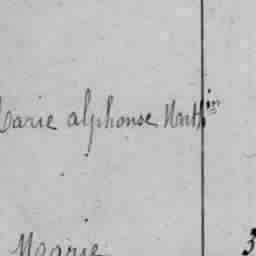 Marie alphonse
Marie
3